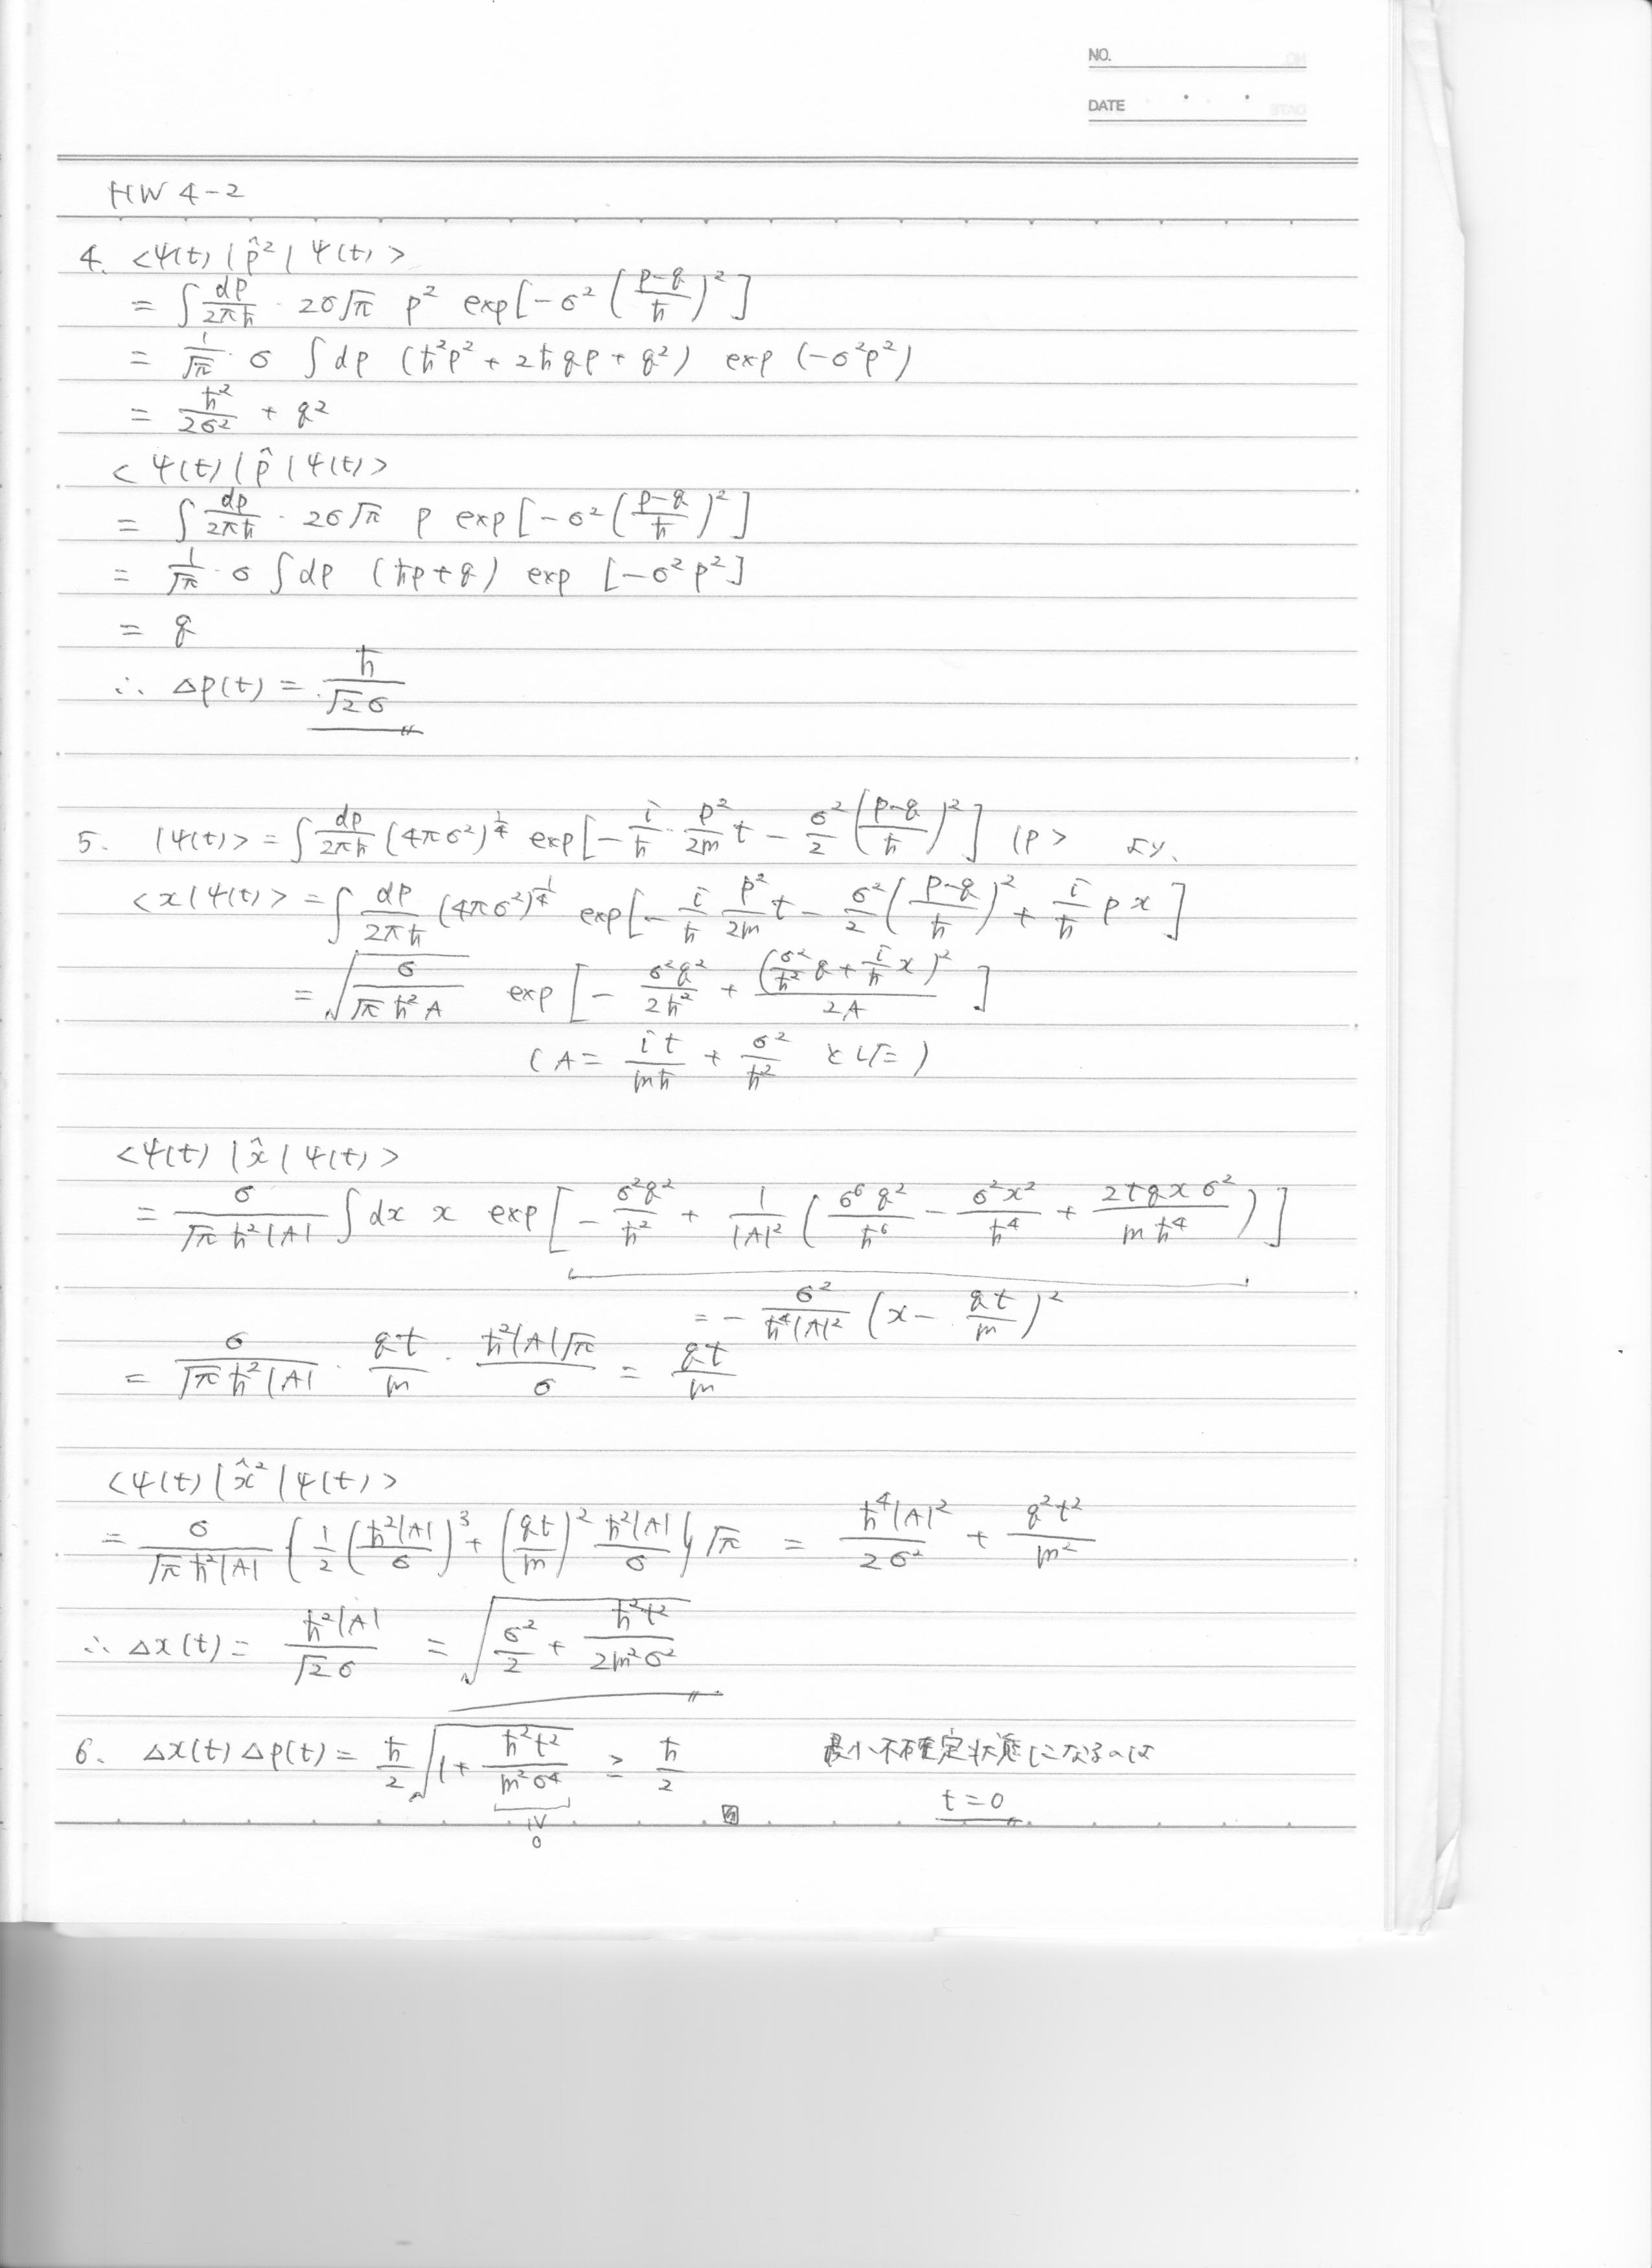 NO.
DATE
HW 4-2
4. <Ψ(t)|p̂²|Ψ(t)>
= ∫ dp/2πħ · 2σ√π p² exp[-σ²((p-q)/ħ)²]
= 1/√π · σ ∫dp (ħ²p² + 2ħqp + q²) exp(-σ²p²)
= ħ²/2σ² + q²
<Ψ(t)|p̂|Ψ(t)>
= ∫ dp/2πħ · 2σ√π p exp[-σ²((p-q)/ħ)²]
= 1/√π · σ ∫dp (ħp+q) exp[-σ²p²]
= q
∴ Δp(t) = ħ/√2σ
5. |Ψ(t)> = ∫ dp/2πħ (4πσ²)^{1/4} exp[-i/ħ · p²/2m t - σ²/2((p-q)/ħ)²] |p> より、
<x|Ψ(t)> = ∫ dp/2πħ (4πσ²)^{1/4} exp[-i/ħ p²/2m t - σ²/2((p-q)/ħ)² + i/ħ px]
= √(σ/(√πħ²A)) exp[-σ²q²/2ħ² + (σ²/ħ² q + i/ħ x)²/2A]
(A = it/mħ + σ²/ħ² とした)
<Ψ(t)|x̂|Ψ(t)>
= σ/(√πħ²|A|) ∫dx x exp[-σ²q²/ħ² + 1/|A|² (σ⁶q²/ħ⁶ - σ²x²/ħ⁴ + 2tqxσ²/mħ⁴)]
= -σ²/(ħ⁴|A|²) (x - qt/m)²
= σ/(√πħ²|A|) · qt/m · ħ²|A|√π/σ = qt/m
<Ψ(t)|x̂²|Ψ(t)>
= σ/(√πħ²|A|) {1/2(ħ²|A|/σ)³ + (qt/m)² ħ²|A|/σ}√π = ħ⁴|A|²/2σ² + q²t²/m²
∴ Δx(t) = ħ²|A|/√2σ = √(σ²/2 + ħ²t²/2m²σ²)
6. Δx(t)Δp(t) = ħ/2 √(1 + ħ²t²/m²σ⁴) ≥ ħ/2 最小不確定状態になるのは
t=0
≥
0